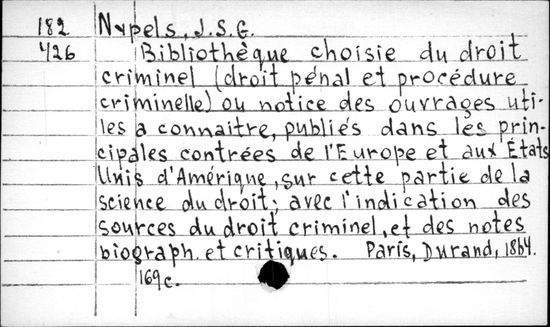 182 Nypels, J.S.G.
426 Bibliothèque choisie du droit
criminel (droit pénal et procédure
criminelle) ou notice des ouvrages uti-
les a connaitre, publiés dans les prin-
cipales contrées de l'Europe et aux États
Unis d'Amérique, sur cette partie de la
science du droit; avec l'indication des
sources du droit criminel, et des notes
biograph. et critiques. Paris, Durand, 1864.
169c.